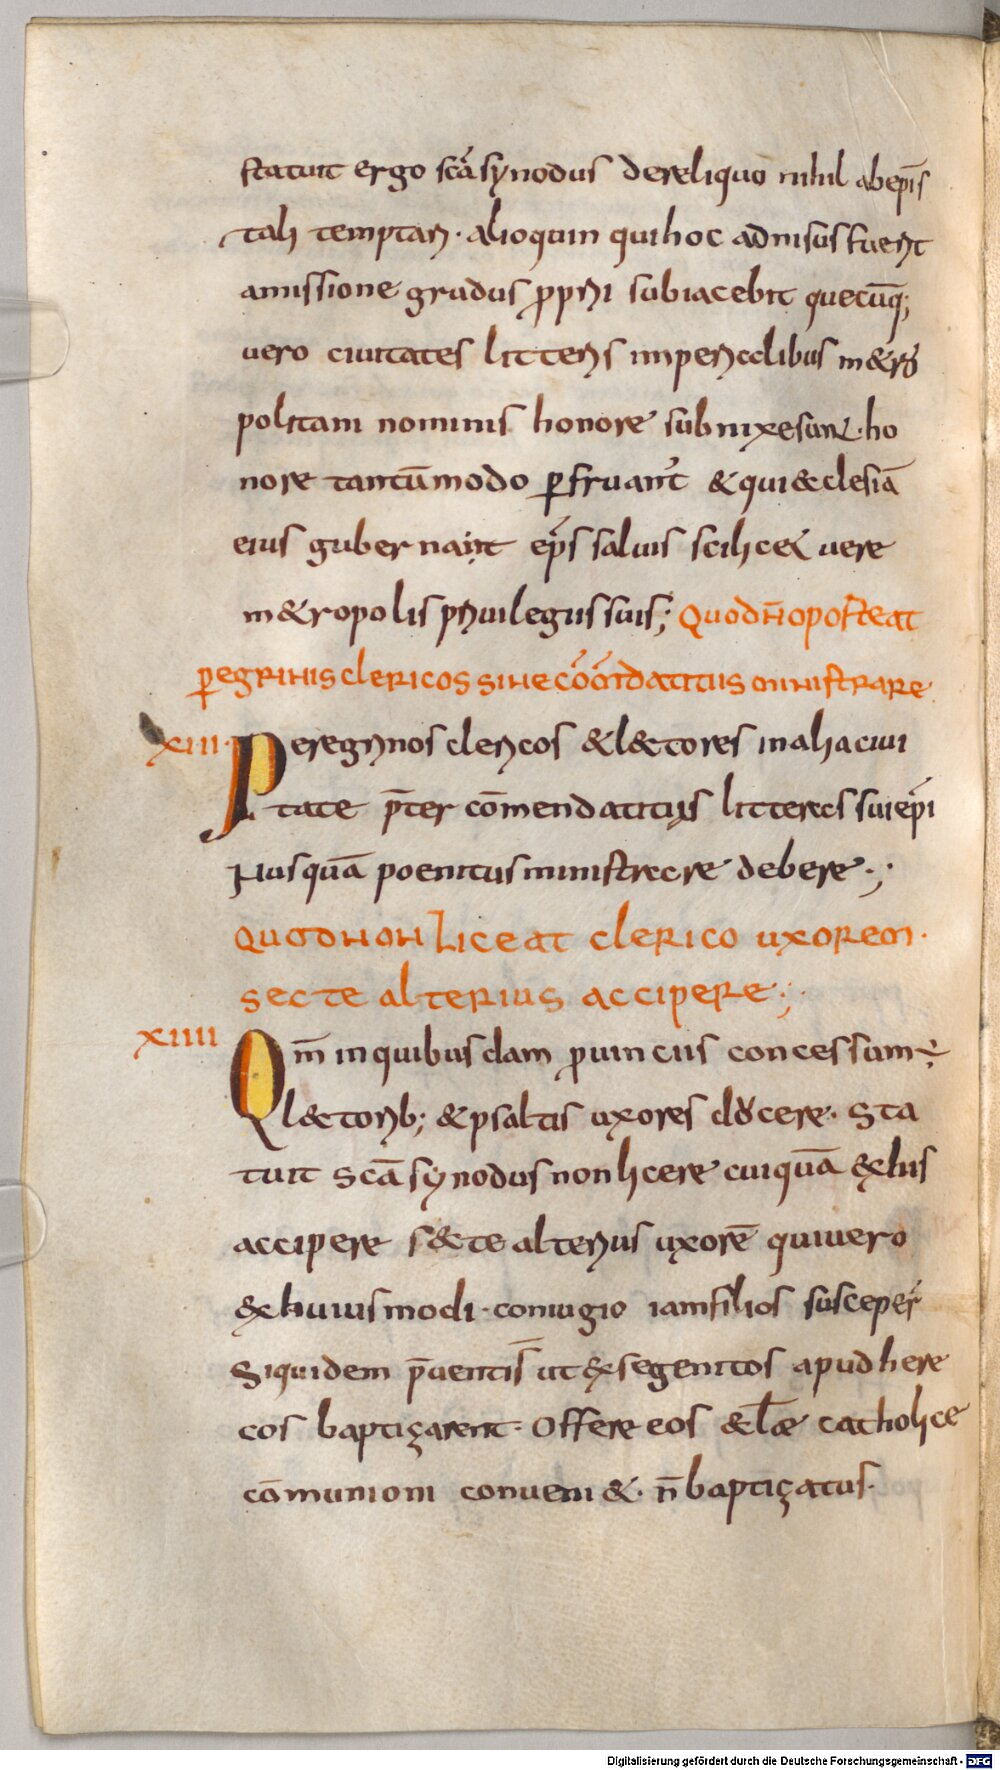 statuit ergo scã synodus dereliquo nihil abep̃is
tali temptari · alioquin quihoc admisusfuerit
amissione gradus ꝓprii subiacebit quecũq;
uero ciuitates litteris imperialibus m&ro
politani nominis honore subnixesunt · ho
nore tantũmodo ꝑfruant̃ & qui &clesiã
eius gubernant ep̃s saluis scilic& uere
m&ropolis priuilegiis suis; Quod ñ oporteat
ꝑegrinis clericos sine cõm̃datitiis ministrare
xiii · Peregrinos clericos & l&tores in alia ciui
tate p̃ter cõmendatitiis litteras sui ep̃i
Nusquã poenitus ministrare debere ·;·
Quod non Liceat clerico uxorem ·
secte alterius accipere ·;·
xiiii Qm̃ inquibusdam ꝓuinciis concessum ÷
l&torib; & psaltis uxores ducere · Sta
tuit scã synodus non licere cuiquã exhis
accipere s&te alterius uxorẽ quiuero
exhuiusmodi · coniugio iamfilios susceper̃
Siquidem p̃uentis ut exsegenitos apud here
cos baptizarent · Offere eos &l̃æ catholice
cõmunioni conueni& · ñ baptizatus ·
Digitalisierung gefördert durch die Deutsche Forschungsgemeinschaft - DFG